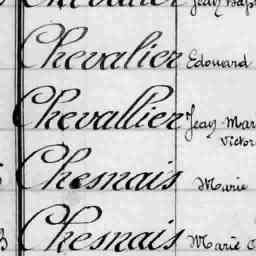 Chevalier Jean Bap
Chevalier Edouard
Chevallier Jean Mar
Victor
Chesnais Marie
Chesnais Marie